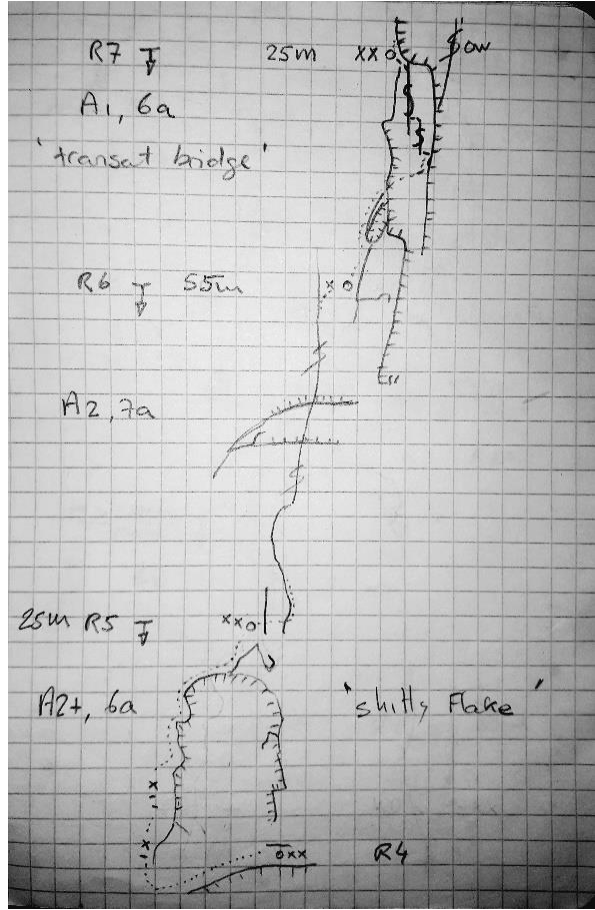 R7 25m xxo OW
A1, 6a
'transat bridge'
R6 55m xo
A2, 7a
25m R5 xxo
A2+, 6a 'shitty Flake'
xx
xx
oxx R4